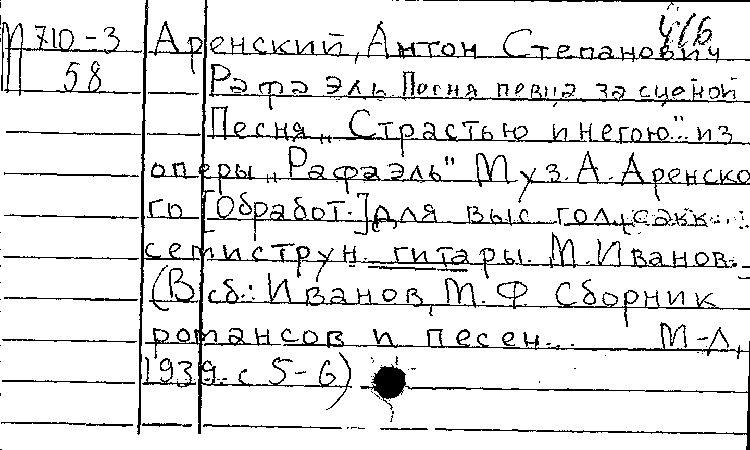 М 710-3 Аренский, Антон Степанович
58 Рафаэль Песня певца за сценой
Песня „Страстью и негою" из
оперы „Рафаэль" Муз. А. Аренско
го [Обработ.] для выс. гол. с акк.
семиструн. гитары. М. Иванов.
(В сб.: Иванов, М. Ф. Сборник
романсов и песен... М-Л,
1939. с 5-6)